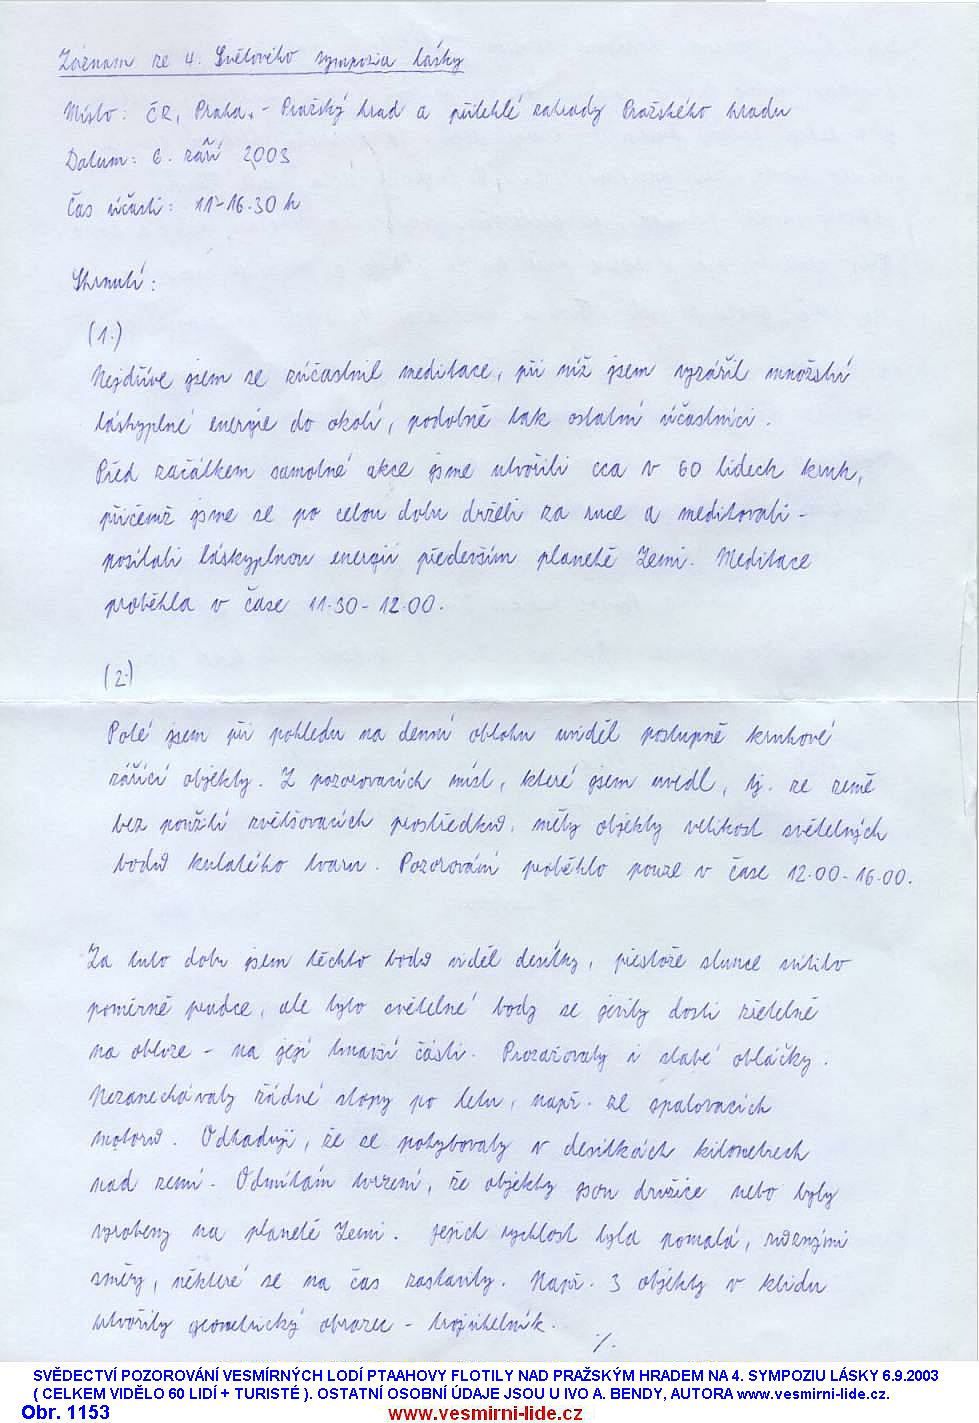 Záznam ze 4. Světového sympozia lásky
Místo: ČR, Praha, - Pražský hrad a přilehlé zahrady Pražského hradu
Datum: 6. září 2003
Čas účasti: 11-16.30 h
Shrnutí:
(1.)
Nejdříve jsem se zúčastnil meditace, při níž jsem vyzářil množství
láskyplné energie do okolí, podobně tak ostatní účastníci.
Před začátkem samotné akce jsme utvořili cca v 60 lidech kruh,
přičemž jsme se po celou dobu drželi za ruce a meditovali -
posílali láskyplnou energii především planetě Zemi. Meditace
proběhla v čase 11.30-12.00.
(2.)
Poté jsem při pohledu na denní oblohu uviděl postupně kruhové
zářící objekty. Z pozorovacích míst, které jsem uvedl, tj. ze země
bez použití zvětšovacích prostředků, měly objekty velikost světelných
bodů kulatého tvaru. Pozorování proběhlo pouze v čase 12.00-16.00.
Za tuto dobu jsem těchto bodů viděl desítky, přestože slunce svítilo
poměrně prudce, ale tyto světelné body se jevily dosti zřetelně
na obloze - na její tmavší části. Prozařovaly i slabé obláčky.
Nezanechávaly žádné stopy po letu, např. ze spalovacích
motorů. Odhaduji, že se pohybovaly v desítkách kilometrech
nad zemí. Odmítám tvrzení, že objekty jsou družice nebo byly
vyrobeny na planetě Zemi. Jejich rychlost byla pomalá, různými
směry, některé se na čas zastavily. Např. 3 objekty v klidu
utvořily geometrický obrazec - trojúhelník.
./.
SVĚDECTVÍ POZOROVÁNÍ VESMÍRNÝCH LODÍ PTAAHOVY FLOTILY NAD PRAŽSKÝM HRADEM NA 4. SYMPOZIU LÁSKY 6.9.2003
( CELKEM VIDĚLO 60 LIDÍ + TURISTÉ ). OSTATNÍ OSOBNÍ ÚDAJE JSOU U IVO A. BENDY, AUTORA www.vesmirni-lide.cz.
Obr. 1153 www.vesmirni-lide.cz